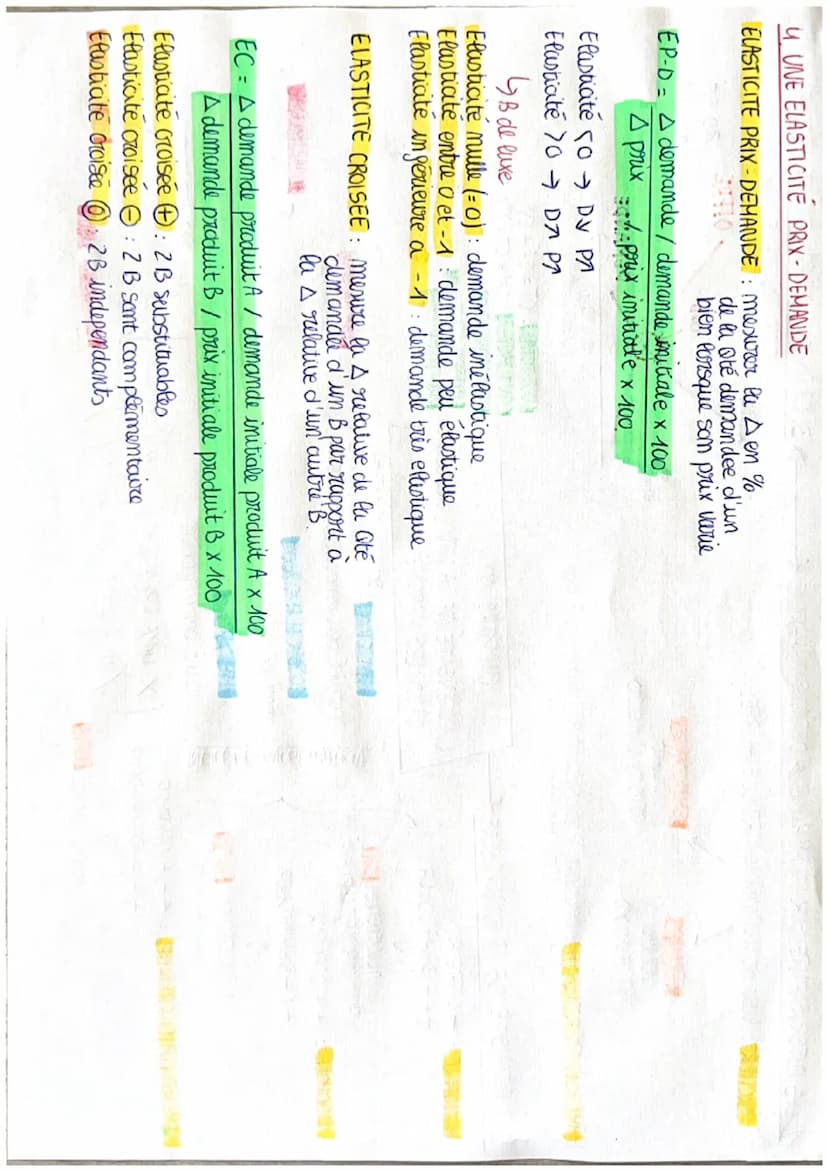 4. UNE ELASTICITÉ PRIX-DEMANDE
ELASTICITE PRIX-DEMANDE : mesurer la Δ en %
de la Qté demandée d'un
bien lorsque son prix varie
EP-D = Δ demande / demande initiale x 100
Δ prix / prix initiale x 100
Elasticité <0 → D↘ P↗
Elasticité >0 → D↗ P↗
↳ B de luxe
Elasticité nulle (=0) : demande inélastique
Elasticité entre 0 et -1 : demande peu élastique
Elasticité inférieure a -1 : demande très elastique
ELASTICITE CROISEE : mesure la Δ relative de la Qté
demandée d'un B par rapport à
la Δ relative d'un autre B.
EC = Δ demande produit A / demande initiale produit A x 100
Δ demande produit B / prix initiale produit B x 100
Elasticité croisée ⊕ : 2 B substituables
Elasticité croisée ⊖ : 2 B sont complémentaire
Elasticité croisée ⓪ : 2 B independants